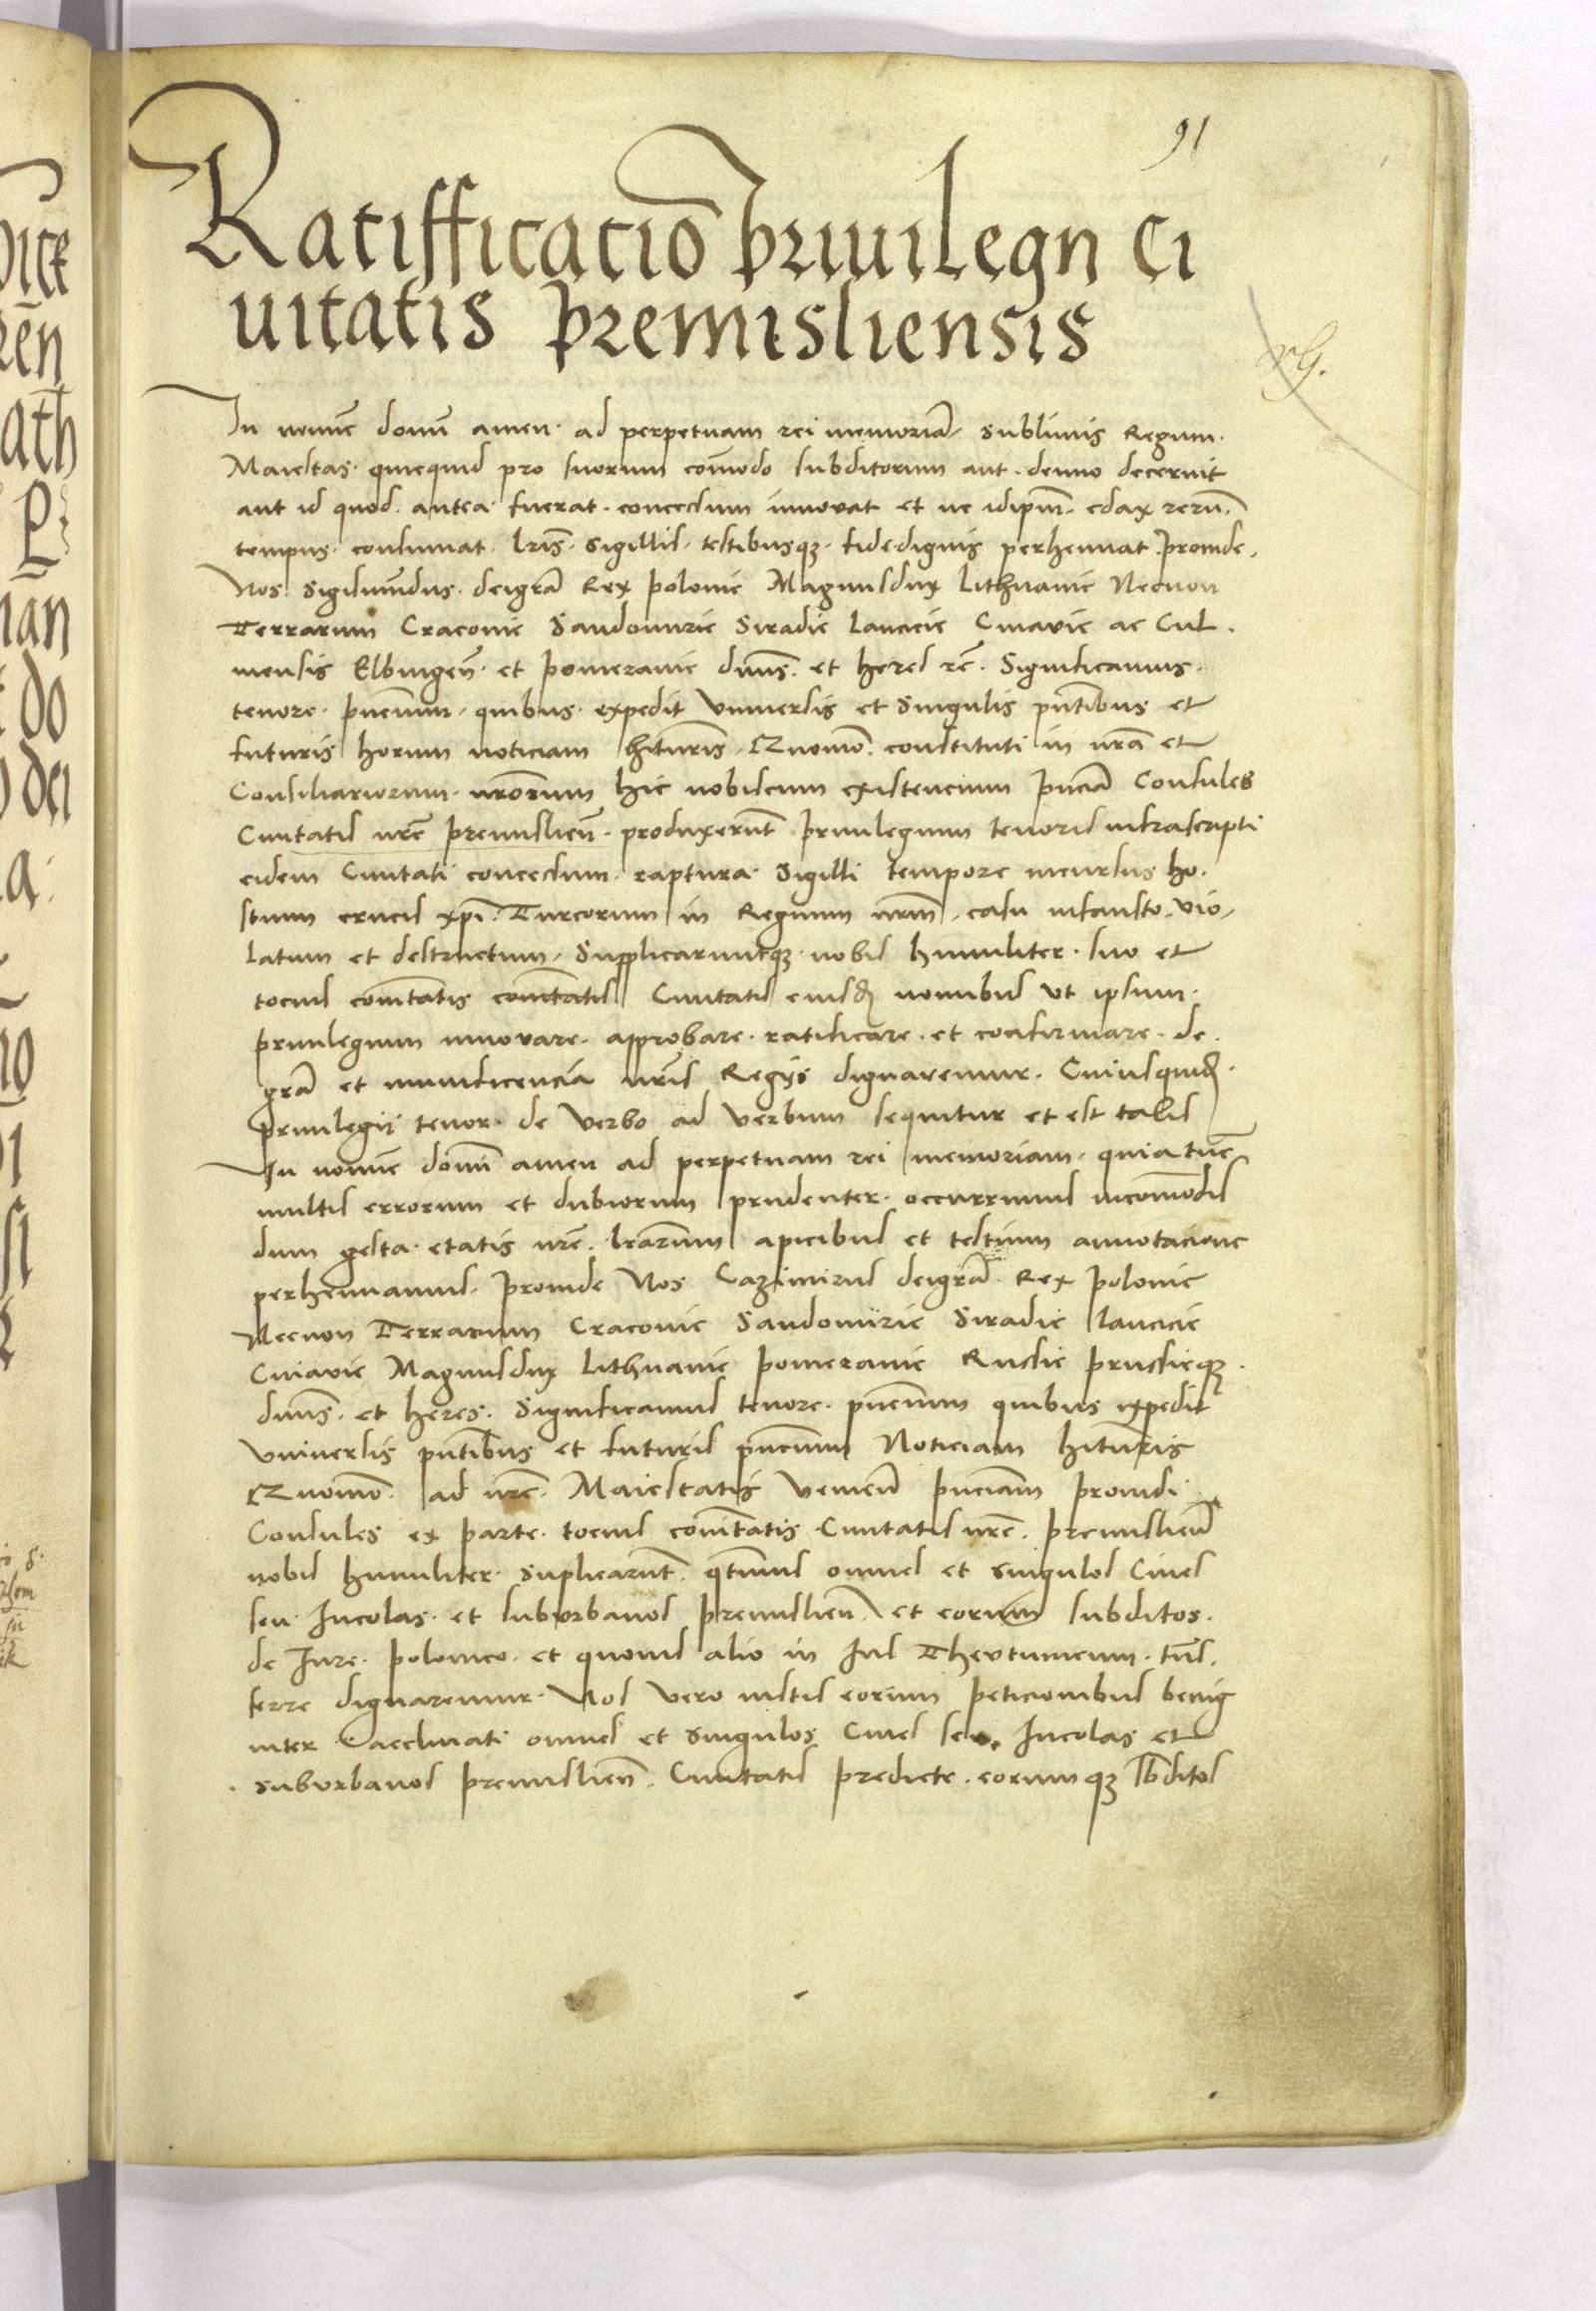 91
Ratifficatio͞ priuilegij Ci
uitatis premisliensis
In nomie͞ domi͞ amen · ad perpetuam rei memoria͞ · Sublimis Regum ·
Maiestas · quicquid pro suorum com͞odo subditorum aut · denuo decernit
aut id quod · antea · fuerat · concessum innouat et ne idipm͞ · edax reru͞ ·
tempus · consumat · lr͞is · sigillis · testibusqꝫ · fidedignis perhennat · proinde ·
Nos Sigismu͞dus · deigra͞ Rex polonie Magnusdux Lithuanie Necnon
Terrarum Cracouie Sandomirie Siradie Lancicie Cuiauie ac Cul ·
mensis Elbingen͞ · et pomeranie dn͞us · et heres re͞ · Significamus ·
tenore · pn͞cium · quibus · expedit vniuersis et singulis pn͞tibus et
futuris horum noticiam hi͞turis · Quomo͞ · constituti in nr͞a et
Consiliariorum · nr͞orum hic nobiscum existencium pn͞cia Consules
Ciuitatis nr͞e premislien͞ · produxerun͞t priuilegium tenoris infrascripti
eidem Ciuitati concessum · raptura · Sigilli tempore incursus ho ·
stium crucis xpi͞ · Turcorum in Regnum nr͞m · casu infausto · vio ·
latum et destructum · Supplicaruntqꝫ · nobis humiliter · suo et
tocius com͞itatis com͞itatis Ciuitatis eiusd͞ no͞ibus vt ipsum ·
priuilegium innouare · approbare · ratificare · et confirmare · de ·
gra͞ et munificencia nr͞is Regijs dignaremur · Cuiusquid͞ ·
priuilegii tenor · de verbo ad verbum sequitur et est talis
In nomie͞ domi͞ amen ad perpetuam rei memoriam · quia tun͞c
multis errorum et dubiorum prudenter · occurrimus incom͞odis
dum gesta · etatis nr͞e · lr͞arum apicibus et testium annotacione
perhennamus · proinde Nos Cazimirus deigra͞ · Rex polonie
Necnon Terrarum Cracouie Sandomirie Siradie Lancicie
Cuiauie Magnusdux Lithuanie pomeranie Russie prussieqꝫ ·
dn͞us · et heres · Significamus tenore · pn͞cium quibus expedit
vniuersis pn͞tibus et futuris pn͞cium Noticiam hi͞turis
Quomo͞ · ad nr͞e · Maiestatis venien͞ pn͞ciam prouidi
Consules ex parte · tocius com͞itatis Ciuitatis nr͞e · premislien͞
nobis humiliter · suplicarun͞t · qt͞inus omnes et singulos Ciues
seu Incolas · et suburbanos premislien͞ et eorum subditos ·
de Iure · polonico · et quouis alio in Ius Thevtunicum · tn͞s ·
ferre dignaremur · Nos vero iustis eorum peticionibus benig
niter · acclinati omnes et singulos Ciues seu Incolas et
suburbanos premislien͞ · Ciuitatis predicte · eorumqꝫ sb͞ditos